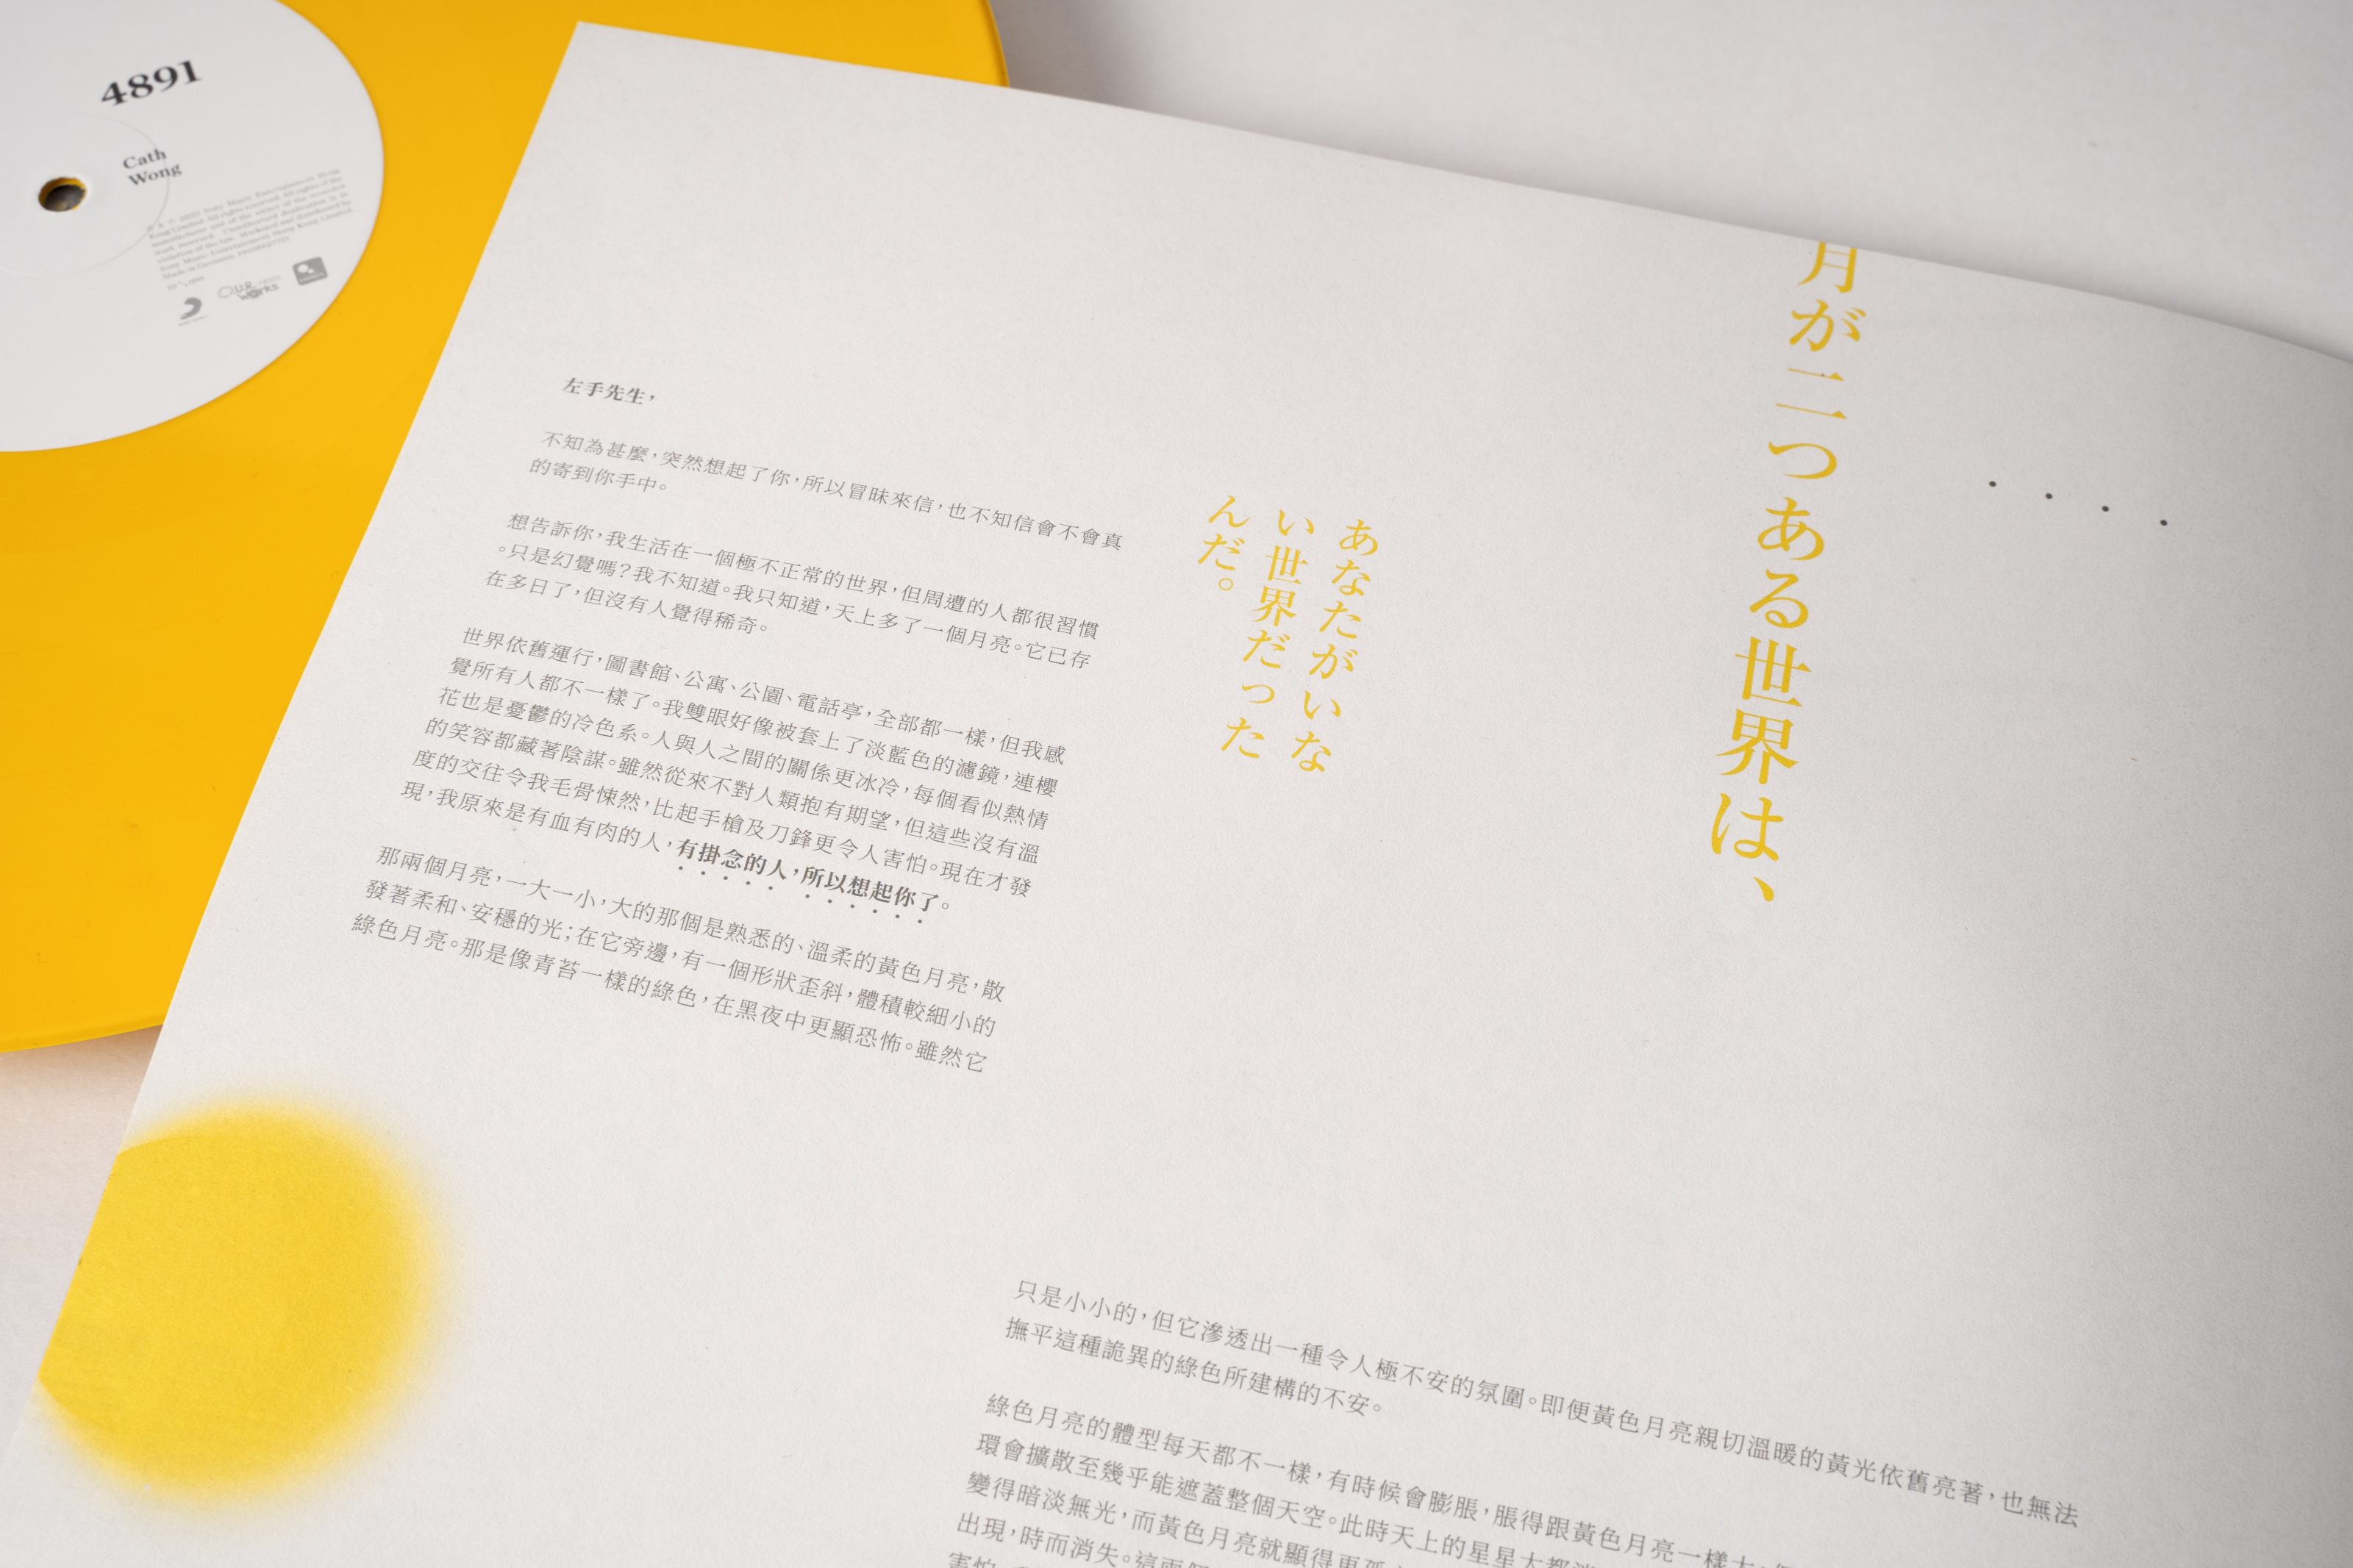 4891
Cath
Wong
月が二つある世界は、
あなたがいな
い世界だった
んだ。
左手先生，
不知為甚麼，突然想起了你，所以冒昧來信，也不知信會不會真
的寄到你手中。
想告訴你，我生活在一個極不正常的世界，但周遭的人都很習慣
。只是幻覺嗎？我不知道。我只知道，天上多了一個月亮。它已存
在多日了，但沒有人覺得稀奇。
世界依舊運行，圖書館、公寓、公園、電話亭，全部都一樣，但我感
覺所有人都不一樣了。我雙眼好像被套上了淡藍色的濾鏡，連櫻
花也是憂鬱的冷色系。人與人之間的關係更冰冷，每個看似熱情
的笑容都藏著陰謀。雖然從來不對人類抱有期望，但這些沒有溫
度的交往令我毛骨悚然，比起手槍及刀鋒更令人害怕。現在才發
現，我原來是有血有肉的人，有掛念的人，所以想起你了。
那兩個月亮，一大一小，大的那個是熟悉的、溫柔的黃色月亮，散
發著柔和、安穩的光；在它旁邊，有一個形狀歪斜，體積較細小的
綠色月亮。那是像青苔一樣的綠色，在黑夜中更顯恐怖。雖然它
只是小小的，但它滲透出一種令人極不安的氛圍。即便黃色月亮親切溫暖的黃光依舊亮著，也無法
撫平這種詭異的綠色所建構的不安。
綠色月亮的體型每天都不一樣，有時候會膨脹，脹得跟黃色月亮一樣大，
環會擴散至幾乎能遮蓋整個天空。此時天上的星星大都
變得暗淡無光，而黃色月亮就顯得更孤
出現，時而消失。這兩個
害怕